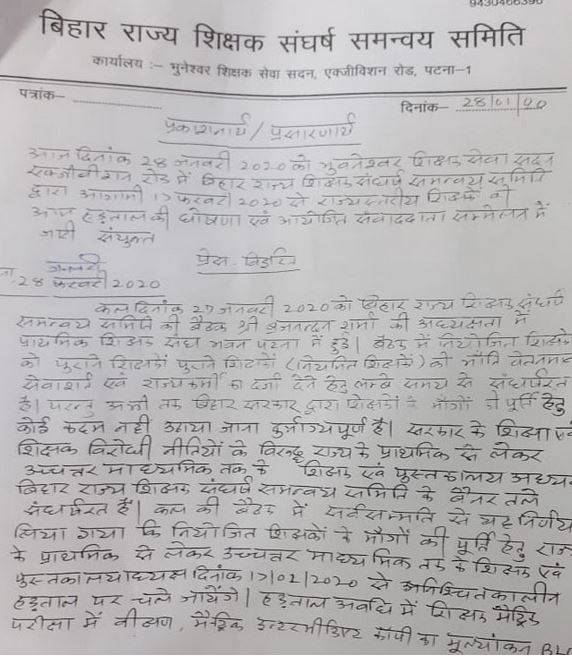 9430466390
बिहार राज्य शिक्षक संघर्ष समन्वय समिति
कार्यालय :– भुनेश्वर शिक्षक सेवा सदन, एक्जीविशन रोड, पटना–1
पत्रांक– दिनांक– 28/01/20
प्रकाशनार्थ / प्रसारणार्थ
आज दिनांक 28 जनवरी 2020 को भुवनेश्वर शिक्षक सेवा सदन
एक्जीवीशन रोड में बिहार राज्य शिक्षक संघर्ष समन्वय समिति
द्वारा आगामी 17 फरवरी 2020 से राज्यस्तरीय शिक्षकों की
आम हड़ताल की घोषणा एवं आयोजित संवाददाता सम्मेलन में
जारी संयुक्त
प्रेस विज्ञप्ति
जनवरी
28 फरवरी 2020
कल दिनांक 27 जनवरी 2020 को बिहार राज्य शिक्षक संघर्ष
समन्वय समिति की बैठक श्री ब्रजनन्दन शर्मा की अध्यक्षता में
प्राथमिक शिक्षक संघ भवन पटना में हुई। बैठक में नियोजित शिक्षकों
को पुराने शिक्षकों पुराने शिक्षकों (नियमित शिक्षकों) की भाँति वेतनमान
सेवाशर्त एवं राज्यकर्मी का दर्जा देने हेतु लम्बे समय से संघर्षरत
है। परन्तु अभी तक बिहार सरकार द्वारा शिक्षकों के माँगों की पूर्ति हेतु
कोई कदम नहीं उठाया जाना दुर्भाग्यपूर्ण है। सरकार के शिक्षा एवं
शिक्षक विरोधी नीतियों के विरुद्ध राज्य के प्राथमिक से लेकर
उच्चत्तर माध्यमिक तक के शिक्षक एवं पुस्तकालय अध्यक्ष
बिहार राज्य शिक्षक संघर्ष समन्वय समिति के बैनर तले
संघर्षरत हैं। कल की बैठक में सर्वसम्मति से यह निर्णय
लिया गया कि नियोजित शिक्षकों के माँगों की पूर्ति हेतु राज्य
के प्राथमिक से लेकर उच्चत्तर माध्यमिक तक के शिक्षक एवं
पुस्तकालयाध्यक्ष दिनांक 17/02/2020 से अनिश्चितकालीन
हड़ताल पर चले जायेंगे। हड़ताल अवधि में शिक्षक मैट्रिक
परीक्षा में वीक्षण, मैट्रिक इन्टरमीडिएट कॉपी का मूल्यांकन